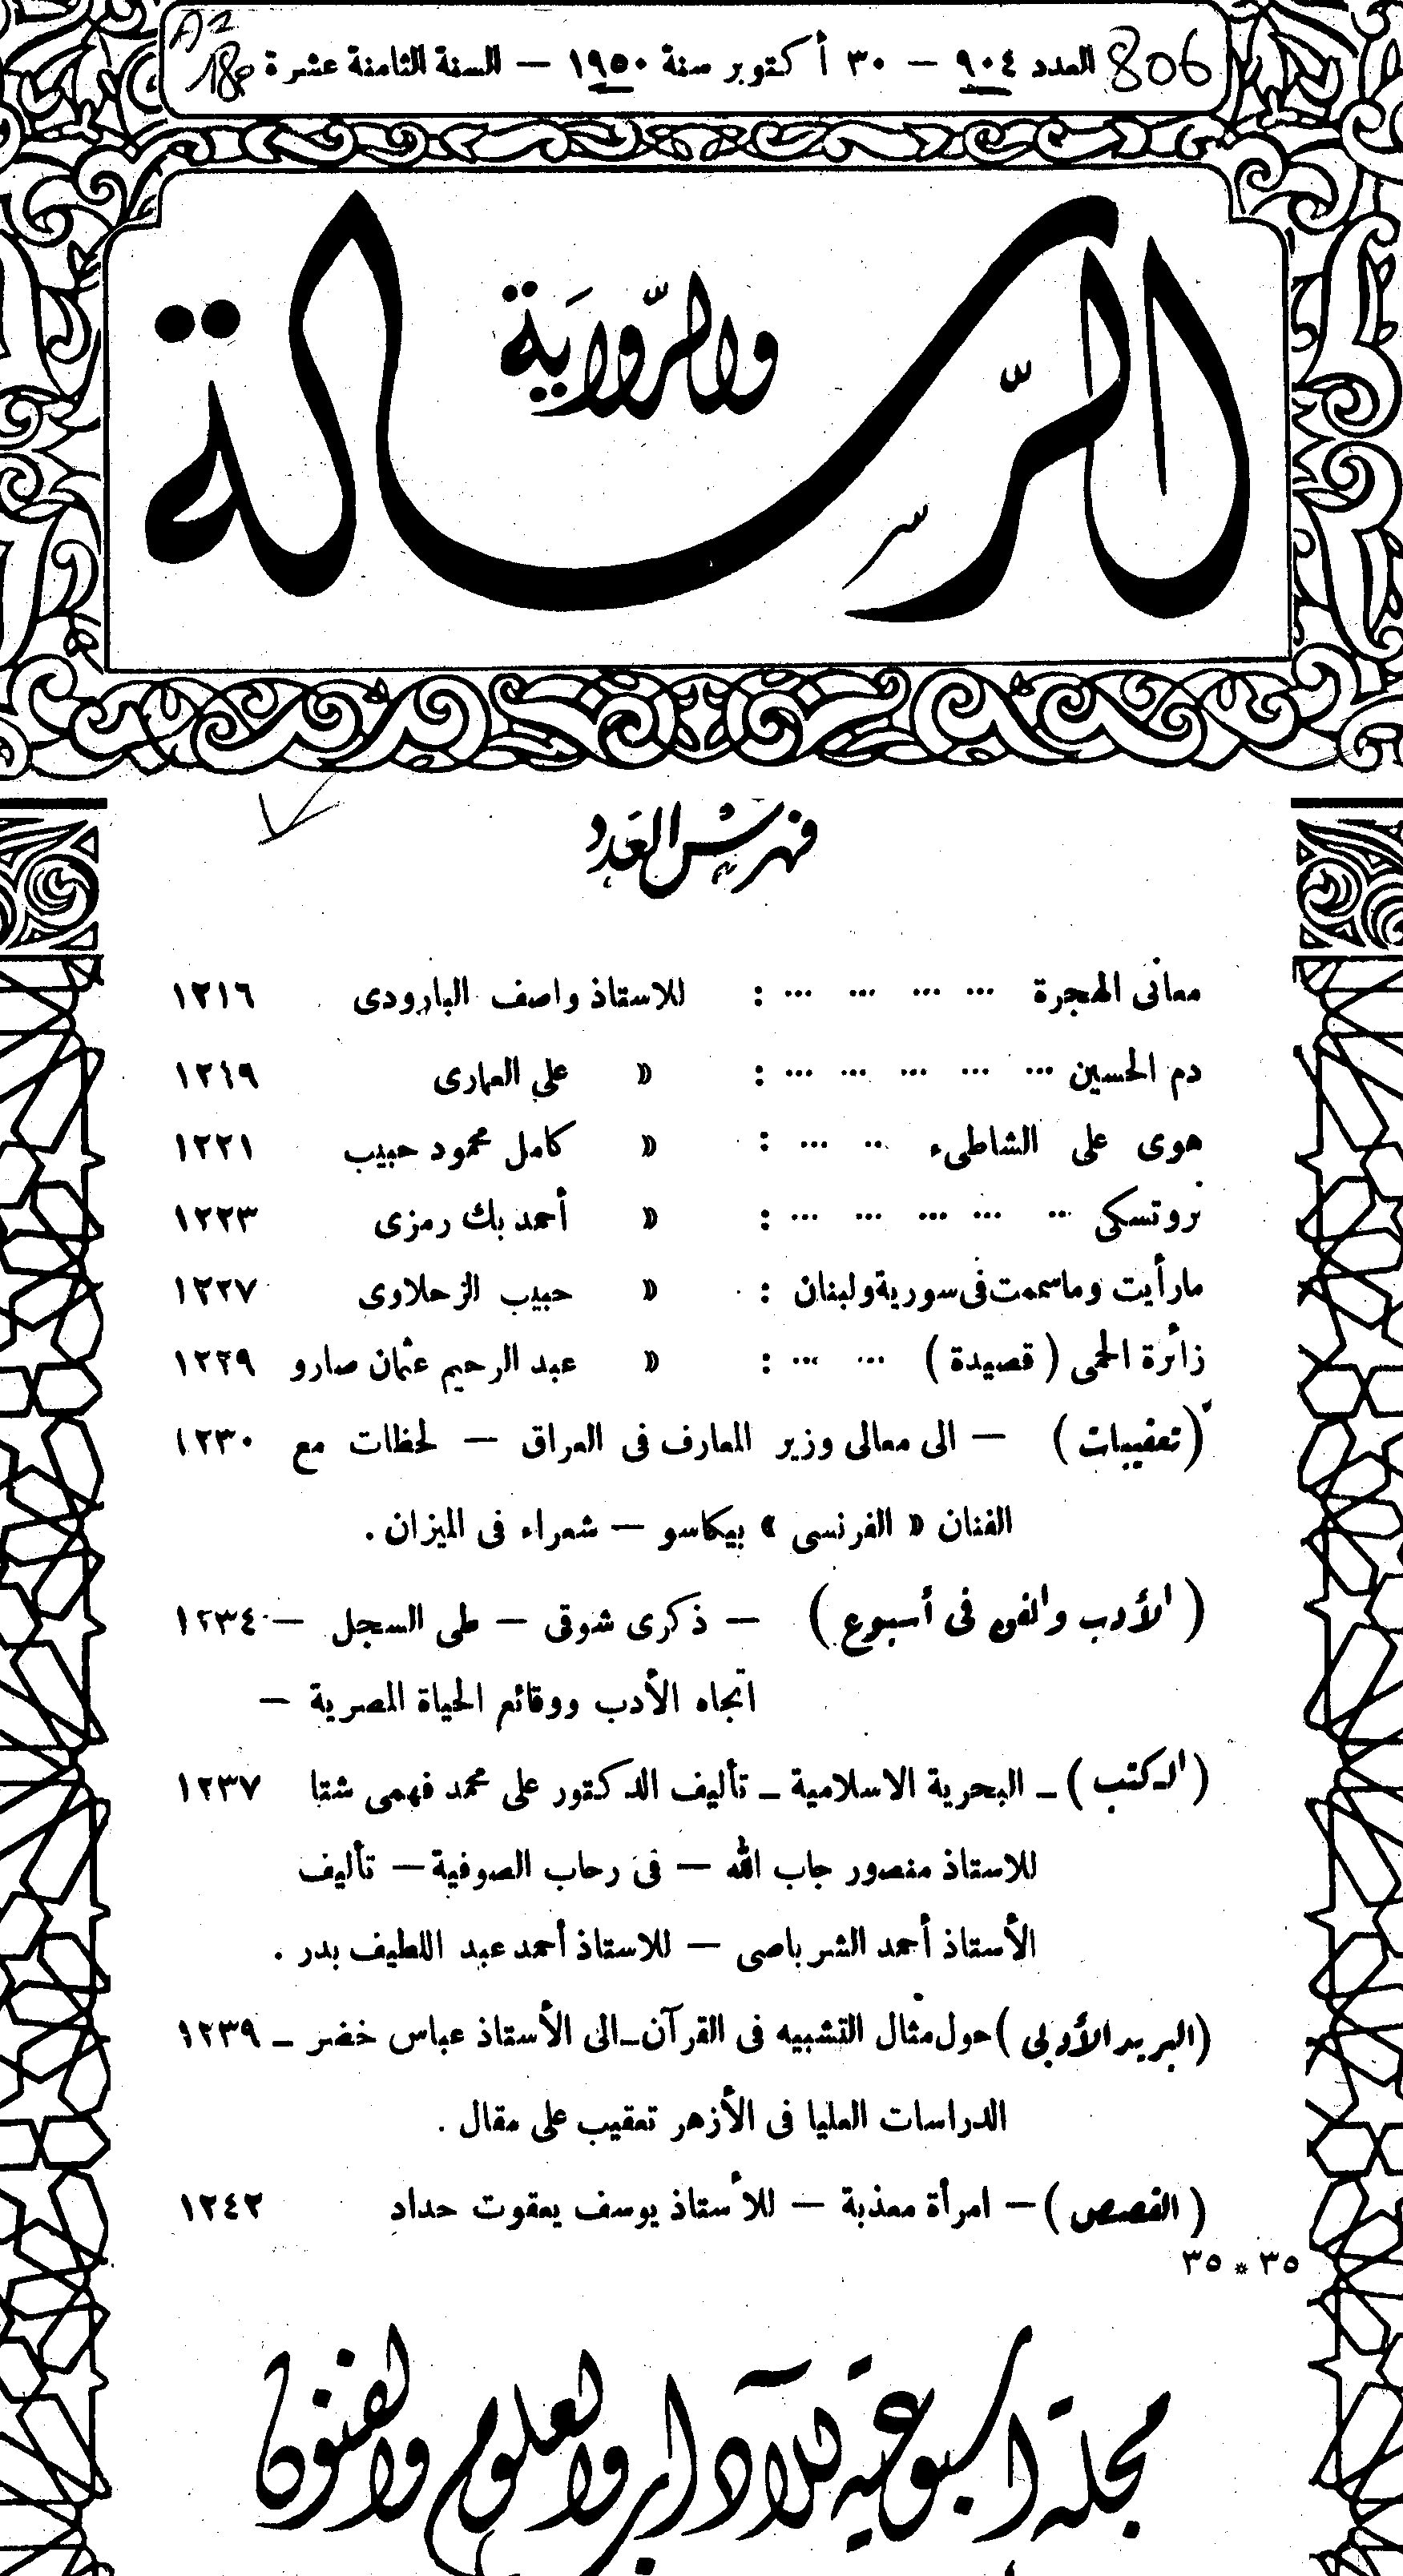 806 العدد ٩٠٤ — ٣٠ أكتوبر سنة ١٩٥٠ — السنة الثامنة عشرة
الرسالة
والرواية
فهرس العدد
معانى الهجرة ... ... ... ... : للاستاذ واصف البارودى ١٢١٦
دم الحسين ... ... ... ... ... : « على العمارى ١٢١٩
هوى على الشاطىء .. ... : « كامل محمود حبيب ١٢٢١
تروتسكى ... ... ... ... ... : « أحمد بك رمزى ١٢٢٣
ما رأيت وما سمعت فى سورية ولبنان : « حبيب الزحلاوى ١٢٢٧
زائرة الحمى ( قصيدة ) ... ... : « عبد الرحيم عثمان صارو ١٢٢٩
(تعقيبات) — الى معالى وزير المعارف فى العراق — لحظات مع ١٢٣٠
الفنان « الفرنسى » بيكاسو — شعراء فى الميزان .
( الأدب والفن فى أسبوع ) — ذكرى شوقى — طى السجل — ١٢٣٤
اتجاه الأدب ووقائع الحياة المصرية —
(الكتب) — البحرية الاسلامية — تأليف الدكتور على محمد فهمى شتا ١٢٣٧
للاستاذ منصور جاب الله — فى رحاب الصوفية — تأليف
الأستاذ أحمد الشرباصى — للاستاذ أحمد عبد اللطيف بدر .
(البريد الأدبى) حول مثال التشبيه فى القرآن — الى الأستاذ عباس خضر — ١٢٣٩
الدراسات العليا فى الأزهر تعقيب على مقال .
( القصص ) — امرأة معذبة — للأستاذ يوسف يعقوت حداد ١٢٤٢
٣٥ * ٣٥
مجلة أسبوعية للآداب والعلوم والفنون